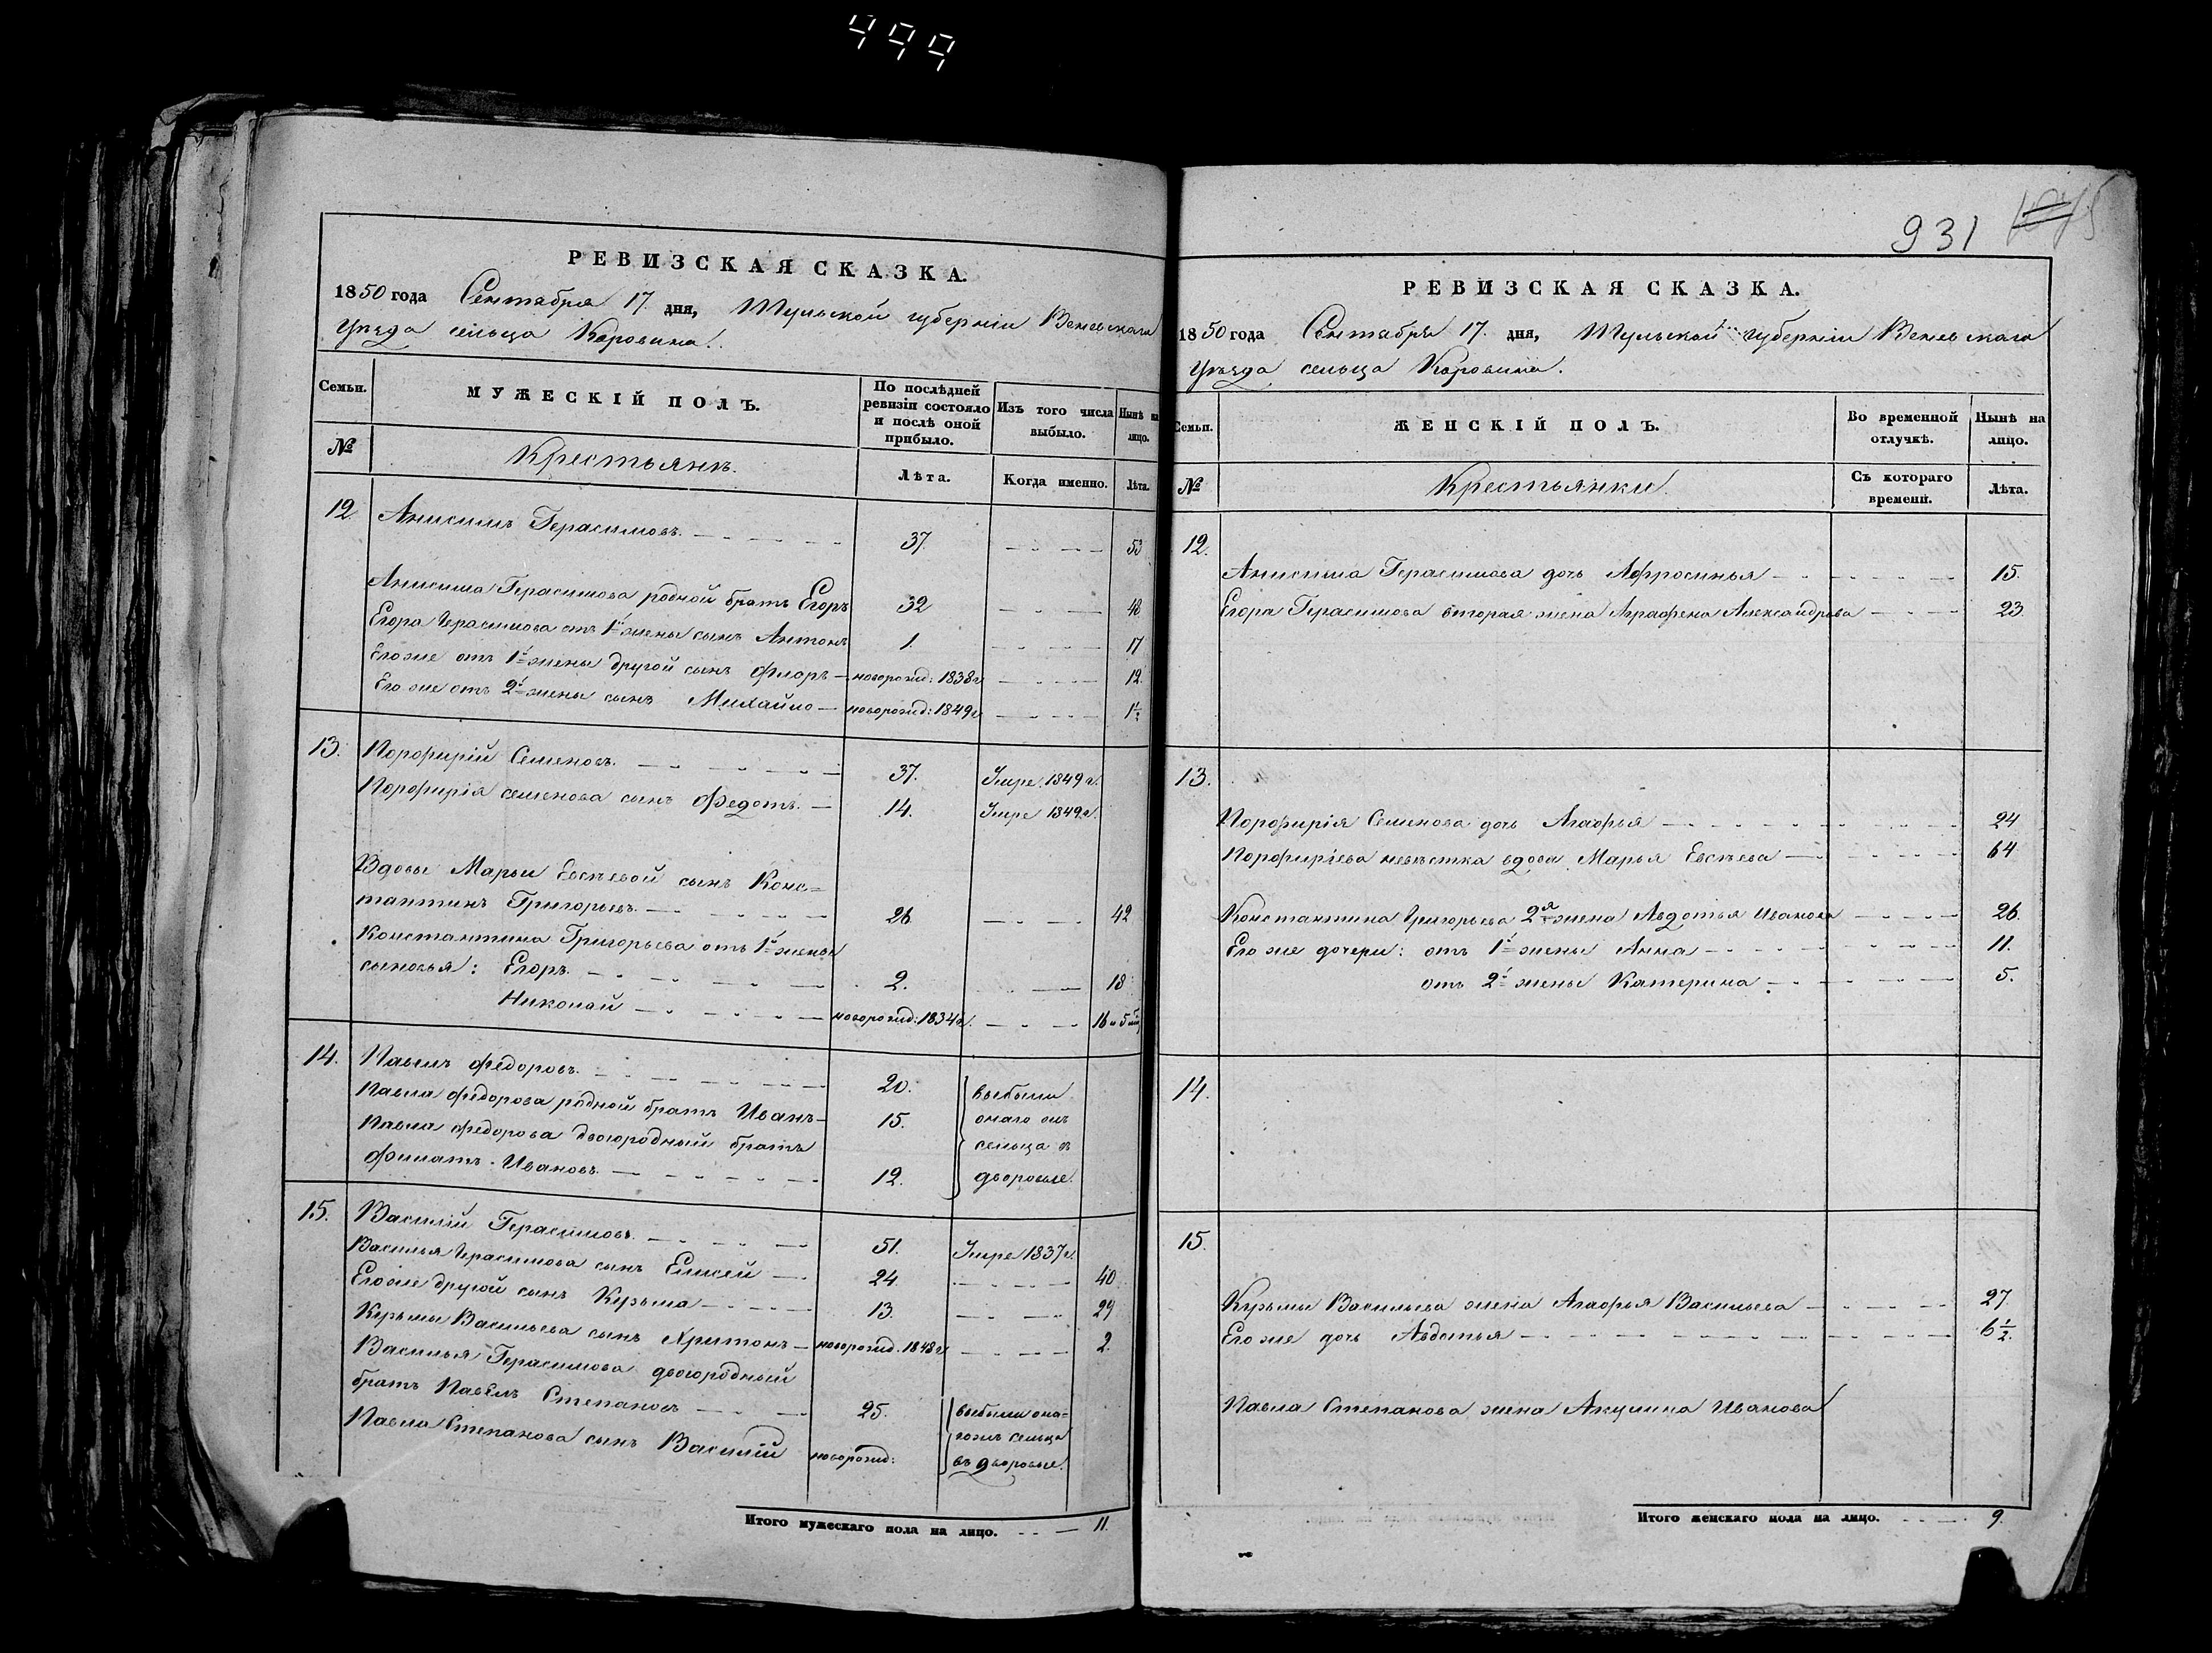 499
РЕВИЗСКАЯ СКАЗКА.
1850 года Сентября 17. дня, Тульской губерніи Веневскаго
Уѣзда сельца Коровина.
Семьи.
МУЖЕСКІЙ ПОЛЪ.
По послѣдней ревизіи состояло и послѣ оной прибыло.
Изъ того числа выбыло.
Нынѣ на лицо.
№
Крестьянъ.
Лѣта.
Когда именно.
Лѣта.
12. Анисимъ Герасимовъ. 37. 53
Анисима Герасимова родной братъ Егоръ 32 48
Егора Герасимова отъ 1й жены сынъ Антонъ 1. 17
Его же отъ 1й жены другой сынъ Флоръ новорожд: 1838г 12.
Его же отъ 2й жены сынъ Михайло новорожд: 1849г 1½
13. Порофирій Семеновъ. 37. Умре 1849г.
Порофирія семенова сынъ Федотъ. 14. Умре 1849г.
Вдовы Марьи Евсѣевой сынъ Конс=
тантинъ Григорьевъ. 26 42
Константина Григорьева отъ 1й жены
сыновья: Егоръ. 2. 18
Николай новорожд: 1834г. 16 и 5
14. Павелъ Федоровъ. 20.
Павла Федорова родной братъ Иванъ 15.
Павла Федорова двоюродный братъ
Филатъ Ивановъ. 12.
выбыли
онаго
сельца в
дворовые.
15. Василій Герасимовъ. 51. Умре 1837г.
Василья Герасимова сынъ Елисей 24 40
Его же другой сынъ Кузьма 13. 29
Кузьмы Васильева сынъ Харитонъ новорожд. 1848г 2.
Василья Герасимова двоюродный
братъ Павелъ Степановъ 25.
Павла Степанова сынъ Василій новорожд:
выбыли она=
сельца
въ дворовые.
Итого мужескаго пола на лицо. 11.
931
РЕВИЗСКАЯ СКАЗКА.
1850 года Сентября 17. дня, Тульской губерніи Веневскаго
Уѣзда сельца Коровина.
Семьи.
ЖЕНСКІЙ ПОЛЪ.
Во временной отлучкѣ.
Нынѣ на лицо.
№
Крестьянки.
Съ котораго времени.
Лѣта.
12.
Анисима Герасимова дочь Афросинья 15.
Егора Герасимова вторая жена Аграфена Александрова 23.
13.
Порофирія Семенова дочь Агафья 24
Порофиріева невѣстка вдова Марья Евсѣева 64
Константина Григорьева 2я жена Авдотья Иванова 26.
Его же дочери: отъ 1й жены Анна 11.
отъ 2й жены Катерина 5.
14.
15.
Кузьмы Васильева жена Агафья Васильева 27.
Его же дочь Авдотья 6½.
Павла Степанова жена Акулина Иванова
Итого женскаго пола на лицо. 9.